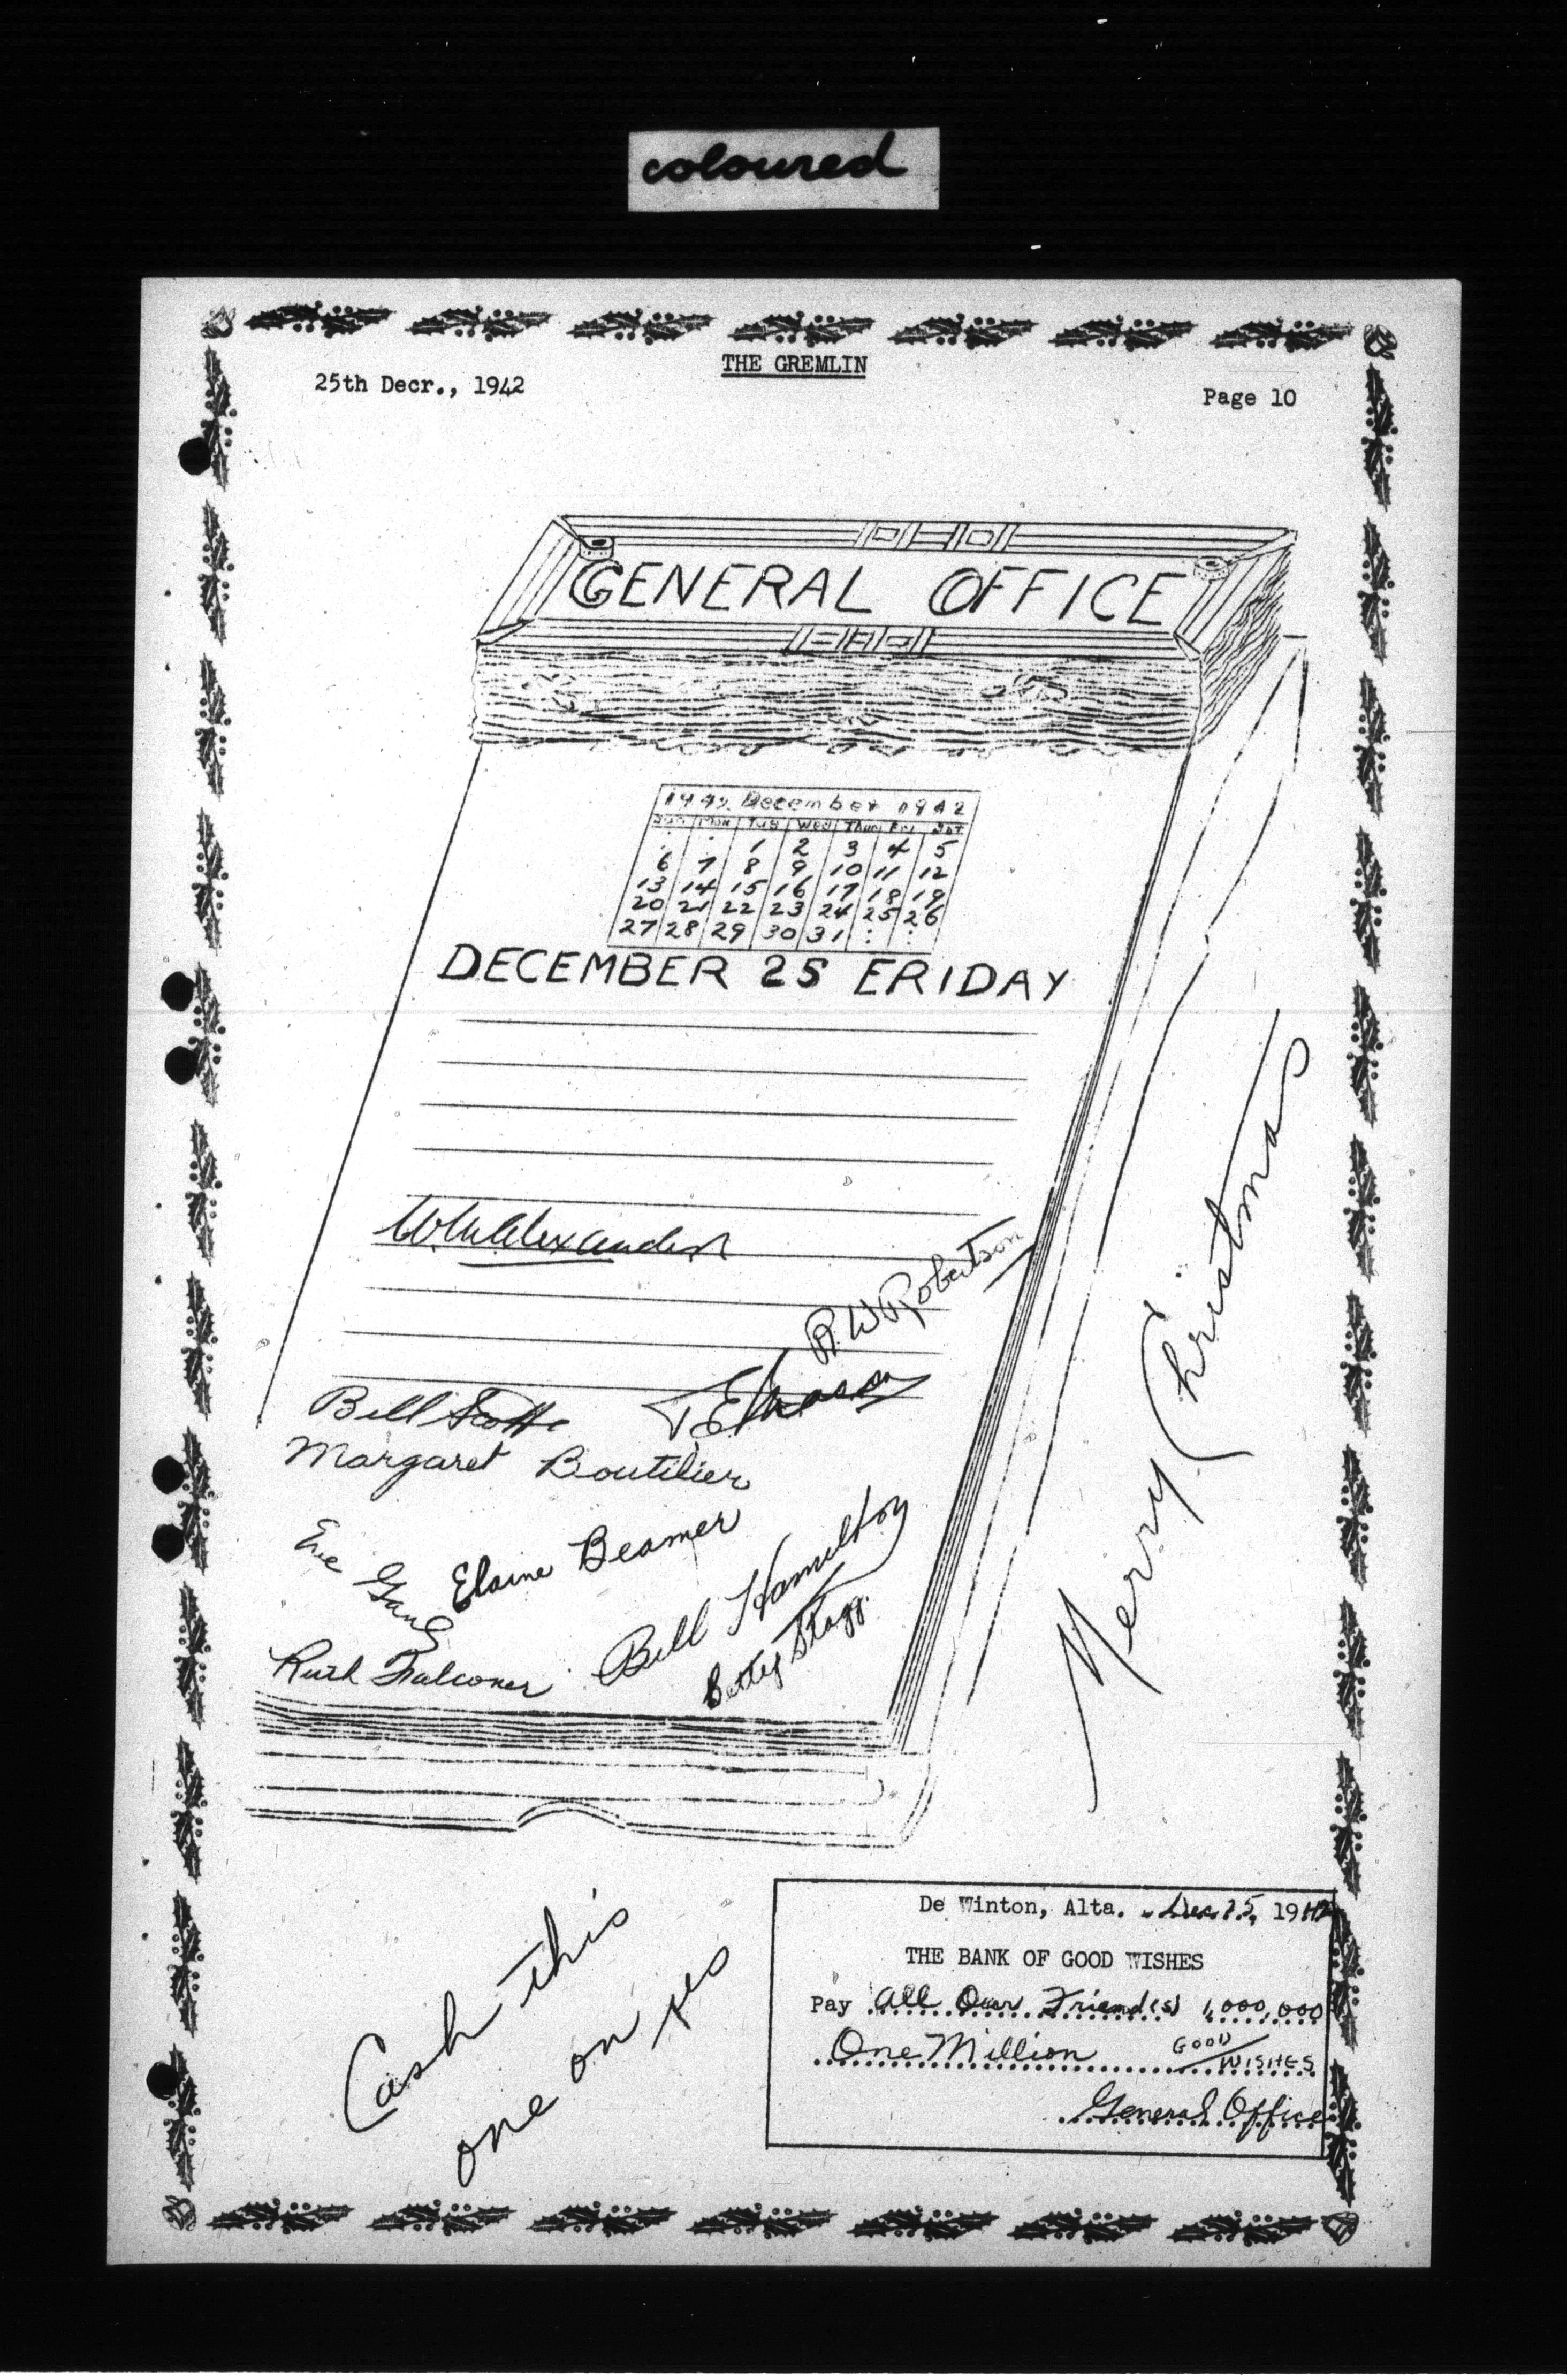 coloured
THE GREMLIN
25th Decr., 1942
Page 10
GENERAL OFFICE
1942 December 1942
Sun Mon Tus Wed Thur Fri Sat
1 2 3 4 5
6 7 8 9 10 11 12
13 14 15 16 17 18 19
20 21 22 23 24 25 26
27 28 29 30 31
DECEMBER 25 FRIDAY
Alexander
R. W. Robertson
Bill Scott
Margaret Boutilier
Eve
Elaine Beamer
Bill Hamilton
Ruth Falconer
Betty Stagg.
Merry Christmas
Cash this
one on us
De Winton, Alta. Dec. 25, 1942
THE BANK OF GOOD WISHES
Pay All Our Friend(s) 1,000,000
One Million GOOD WISHES
General Office